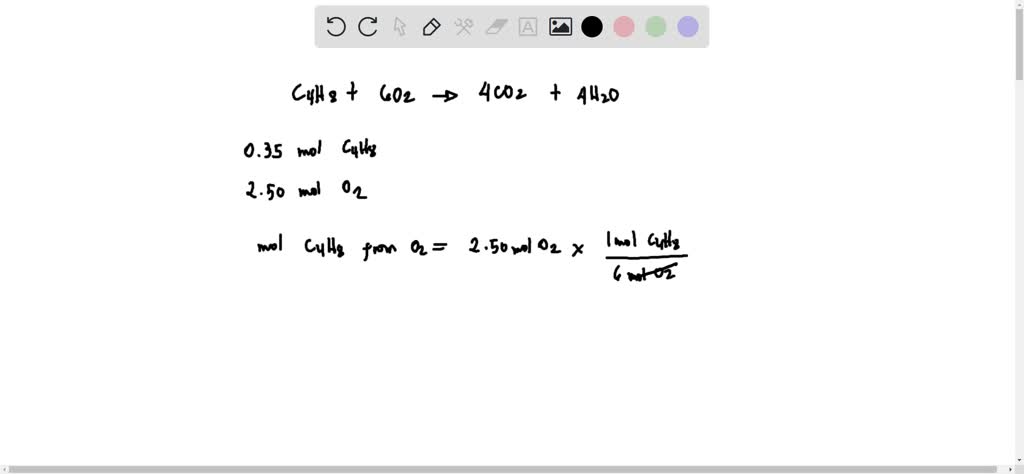 C4H8 + 6O2 → 4CO2 + 4H2O
0.35 mol C4H8
2.50 mol O2
mol C4H8 from O2 = 2.50 mol O2 × 1 mol C4H8
6 mol O2